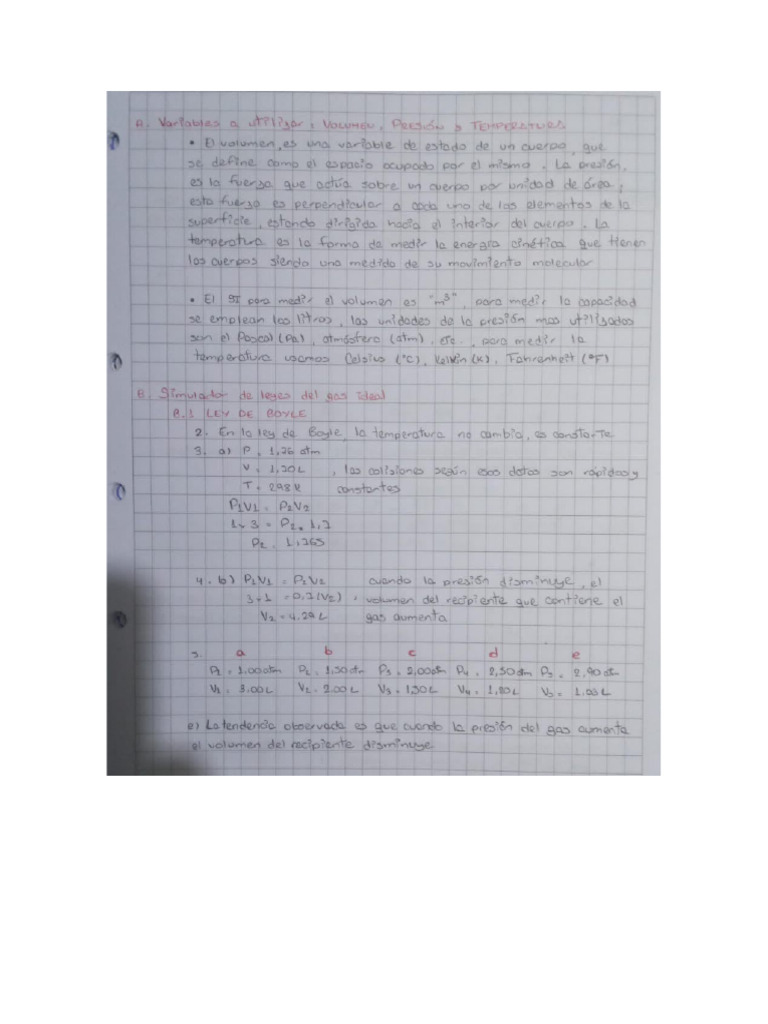 A. Variables a utilizar: Volumen, Presión y Temperatura
• El volumen, es una variable de estado de un cuerpo, que
se define como el espacio ocupado por el mismo. La presión,
es la fuerza que actúa sobre un cuerpo por unidad de área;
esta fuerza es perpendicular a cada uno de los elementos de la
superficie, estando dirigida hacia el interior del cuerpo. La
temperatura es la forma de medir la energía cinética que tienen
los cuerpos siendo una medida de su movimiento molecular
• El SI para medir el volumen es "m³", para medir la capacidad
se emplean los litros, las unidades de la presión mas utilizadas
son el Pascal (Pa), atmósfera (atm), etc., para medir la
temperatura usamos Celsius (°C), Kelvin (K), Fahrenheit (°F)
B. Simulador de leyes del gas ideal
B.1 LEY DE BOYLE
2. En la ley de Boyle, la temperatura no cambia, es constante
3. a) P = 1,76 atm
V = 1,70 L , las colisiones según esos datos son rápidos y
T = 298 K constantes
P1V1 = P2V2
1 x 3 = P2 . 1,7
P2 = 1,765
4. b) P1V1 = P2V2 cuando la presión disminuye, el
3 * 1 = 0,7 (V2) volumen del recipiente que contiene el
V2 = 4.29 L gas aumenta
5. a b c d e
P1 = 1,00 atm P2 = 1,50 atm P3 = 2,00 atm P4 = 2,50 atm P5 = 2,90 at
V1 = 3,00 L V2 = 2.00 L V3 = 1,50 L V4 = 1,20 L V5 = 1,03 L
e) La tendencia observada es que cuando la presión del gas aumenta
el volumen del recipiente disminuye.